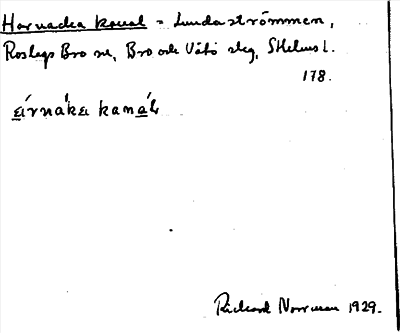 Harnacka kanal = Lundaströmmen,
Roslags Bro sn, Bro och Vätö slg, Sthlms l.
178.
kanál
Rickard Norrman 1929.